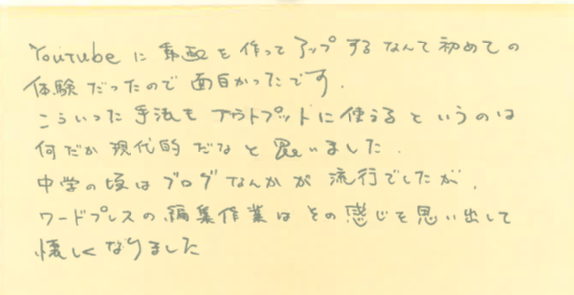 Youtubeに動画を作ってアップするなんて初めての
体験だったので面白かったです.
こういった手法もアウトプットに使えるというのは
何だか現代的だなと思いました.
中学の頃はブログなんかが流行でしたが,
ワードプレスの編集作業はその感じを思い出して
懐しくなりました